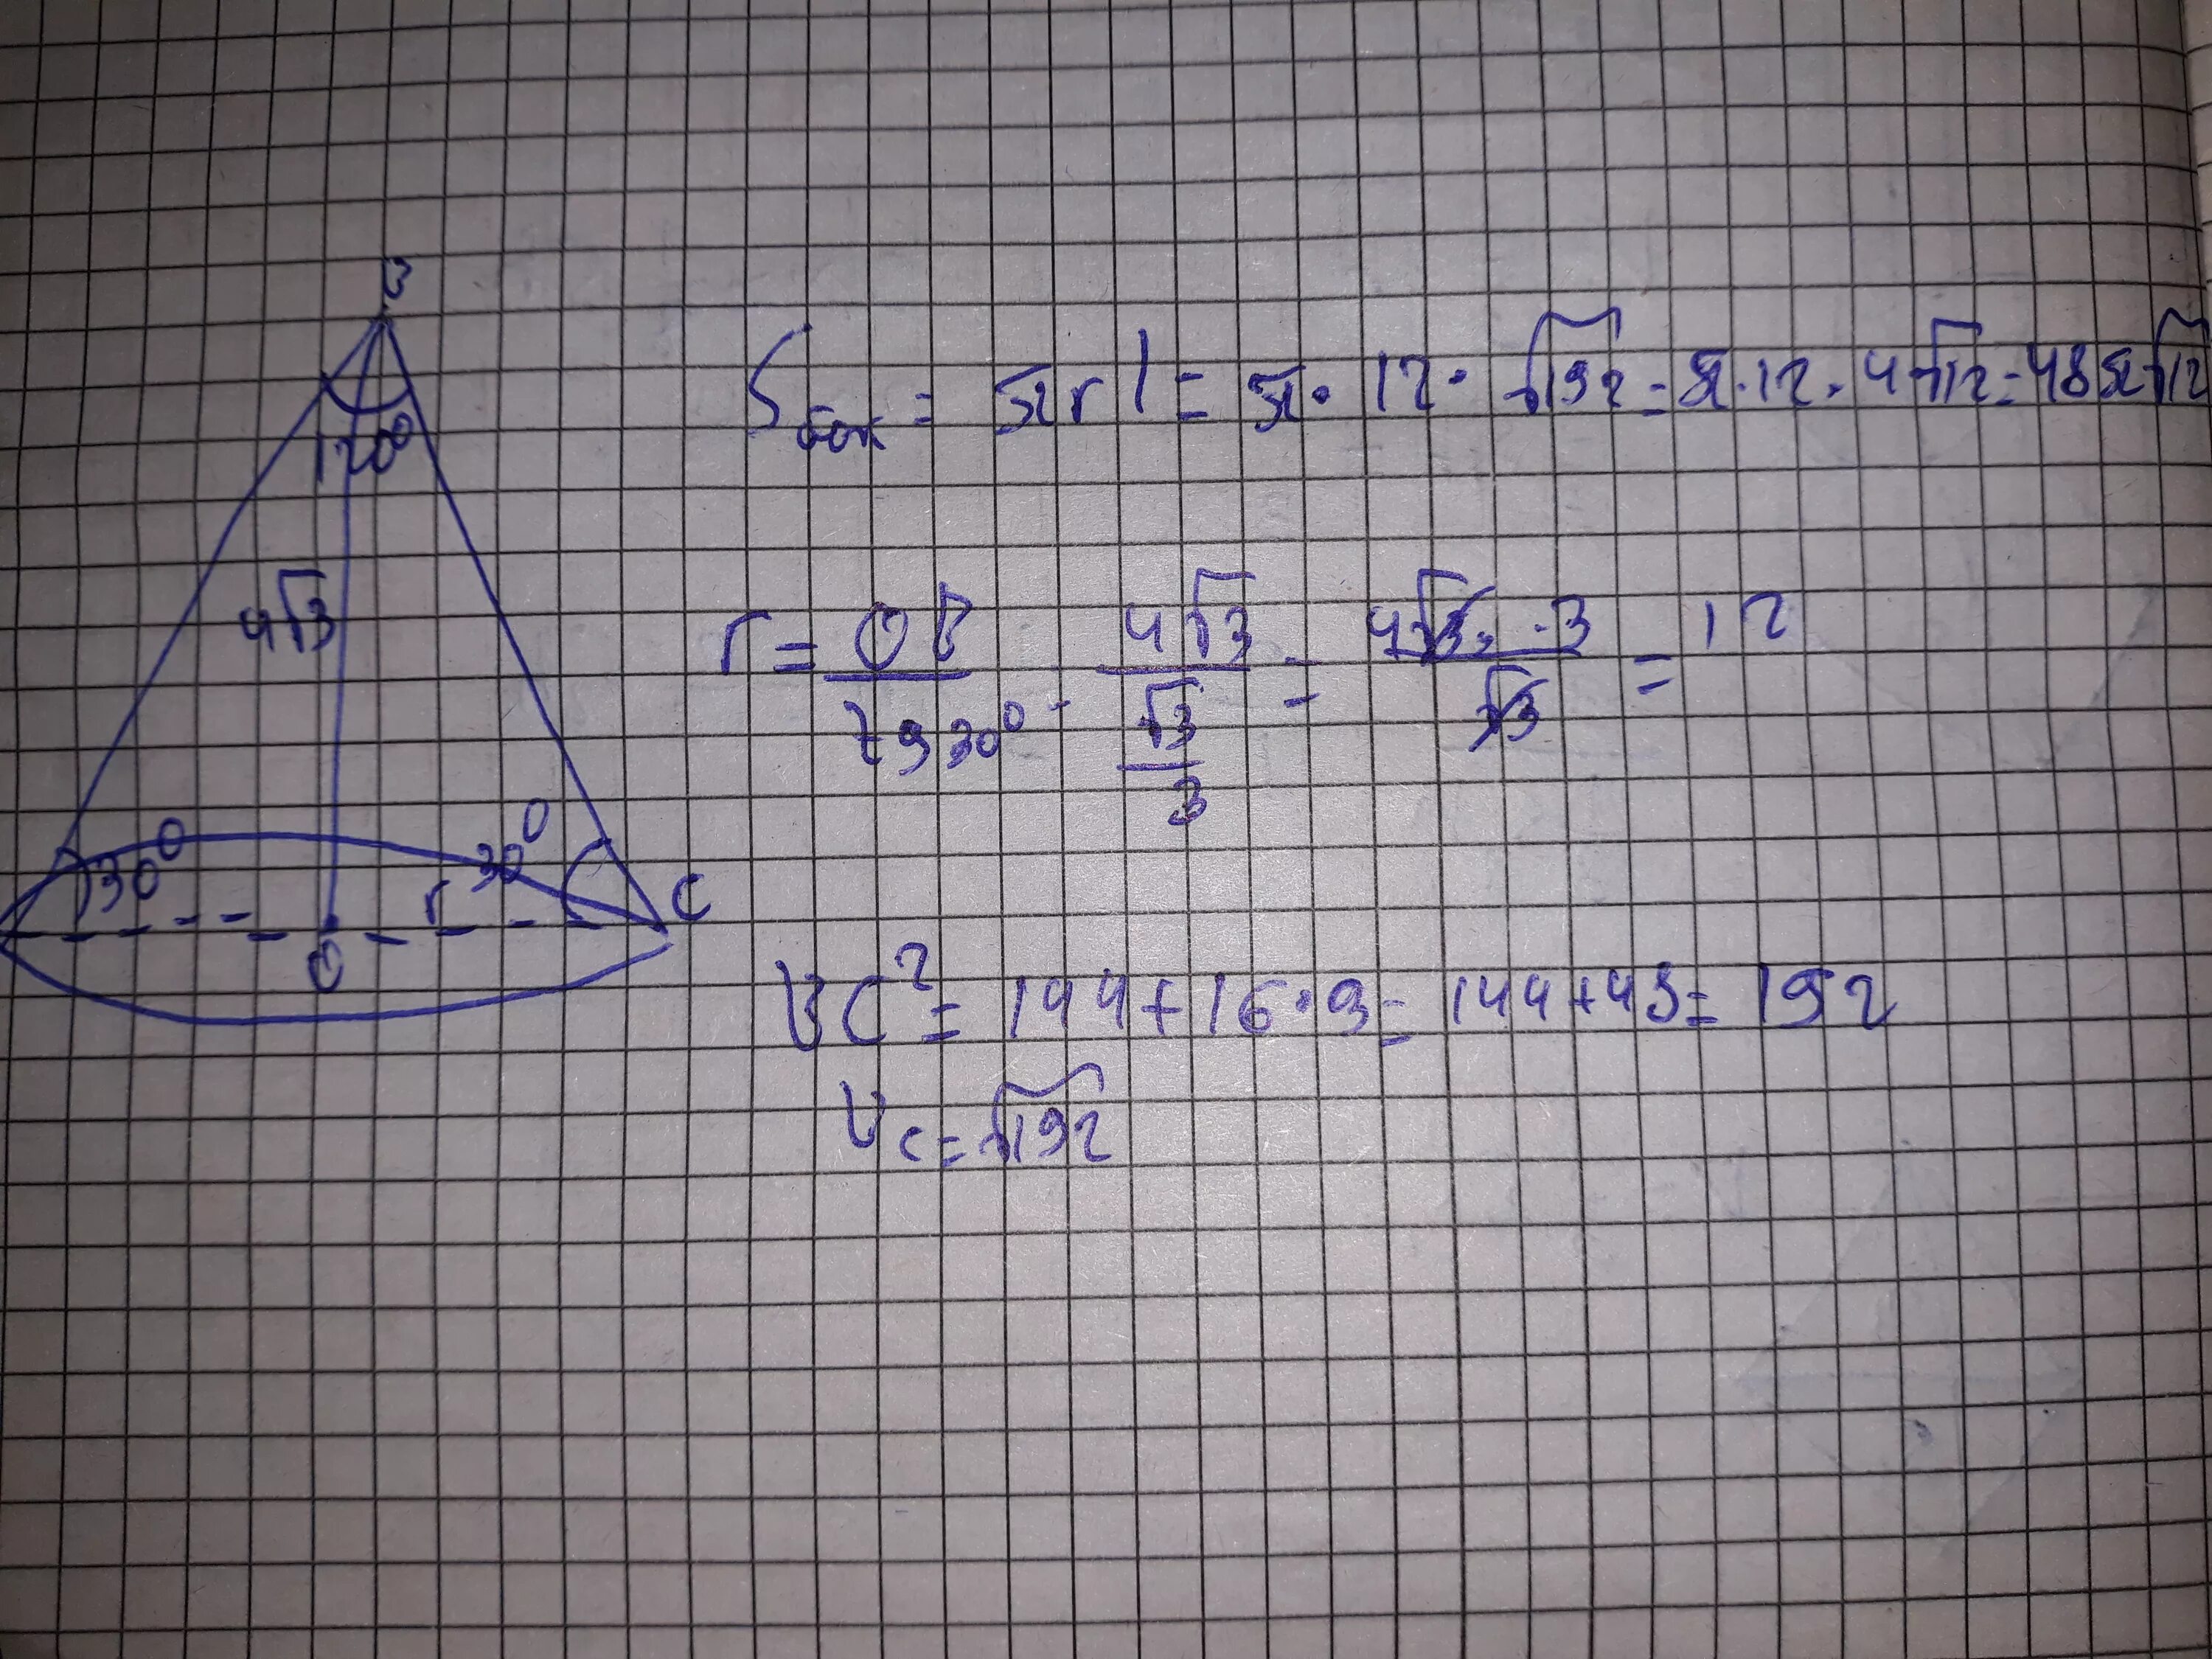 B
120°
4√3
30°
30°
r
C
O
Sбок = πrl = π · 12 · √192 = π · 12 · 4√12 = 48π√12
r = OB / tg 30° = 4√3 / (√3 / 3) = 4√3 · 3 / √3 = 12
BC² = 144 + 16 · 3 = 144 + 48 = 192
BC = √192